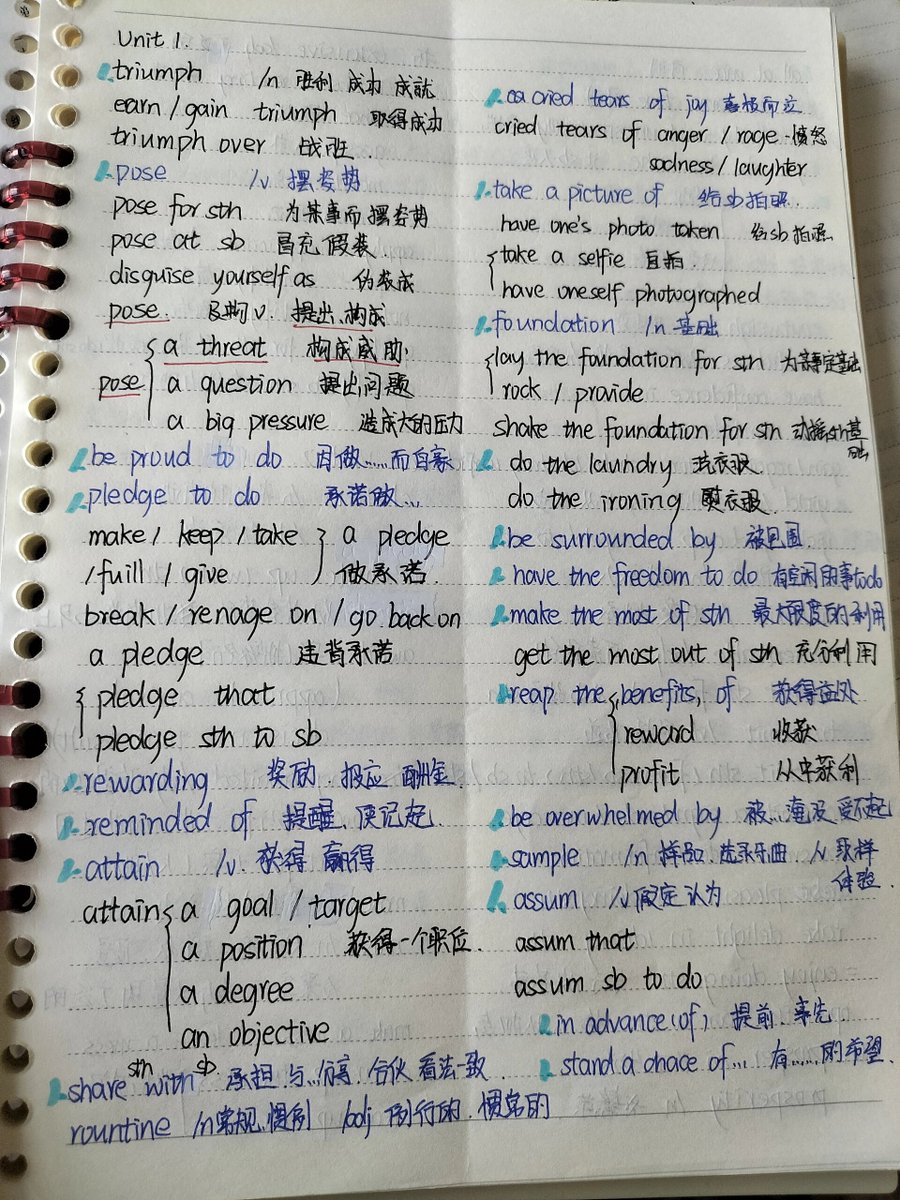 Unit 1.
triumph /n 胜利 成功 成就
earn / gain triumph 取得成功
triumph over 战胜.
pose /v 摆姿势
pose for sth 为某事而摆姿势
pose at sb 冒充 假装.
disguise yourself as 伪装成
pose. 及物v. 提出、构成
pose { a threat 构成威胁;
a question 提出问题
a big pressure 造成大的压力
be proud to do 因做......而自豪
pledge to do 承诺做...
make / keep / take } a pledge
/ fuill / give 做承诺.
break / renage on / go back on
a pledge 违背承诺
{ pledge that
pledge sth to sb
rewarding 奖励、报应 酬金
reminded of 提醒、使记起.
attain /v. 获得 赢得
attain { a goal / target
a position 获得一个职位.
a degree
an objective
share sth with sb 承担 与...分享、合伙 看法一致
rountine /n 常规、惯例 /adj 例行的、惯常的
cried tears of joy 喜极而泣
cried tears of anger / rage - 愤怒
sadness / laughter
take a picture of 给sb拍照.
have one's photo taken 给sb拍照
{ take a selfie 自拍.
have oneself photographed
foundation /n 基础
{ lay the foundation for sth 为某事定基础
rock / provide
shake the foundation for sth 动摇sth基础
do the laundry 洗衣服
do the ironing 熨衣服.
be surrounded by 被包围.
have the freedom to do 有空闲的事to do
make the most of sth 最大限度的利用
get the most out of sth 充分利用
reap the { benefits, of 获得益处
reward 收获
profit 从中获利
be overwhelmed by 被...淹没、受不起
sample /n 样品、选录乐曲 /v 取样
体验.
assum /v 假定 认为
assum that
assum sb to do
in advance (of) 提前、事先.
stand a chace of... 有......的希望.